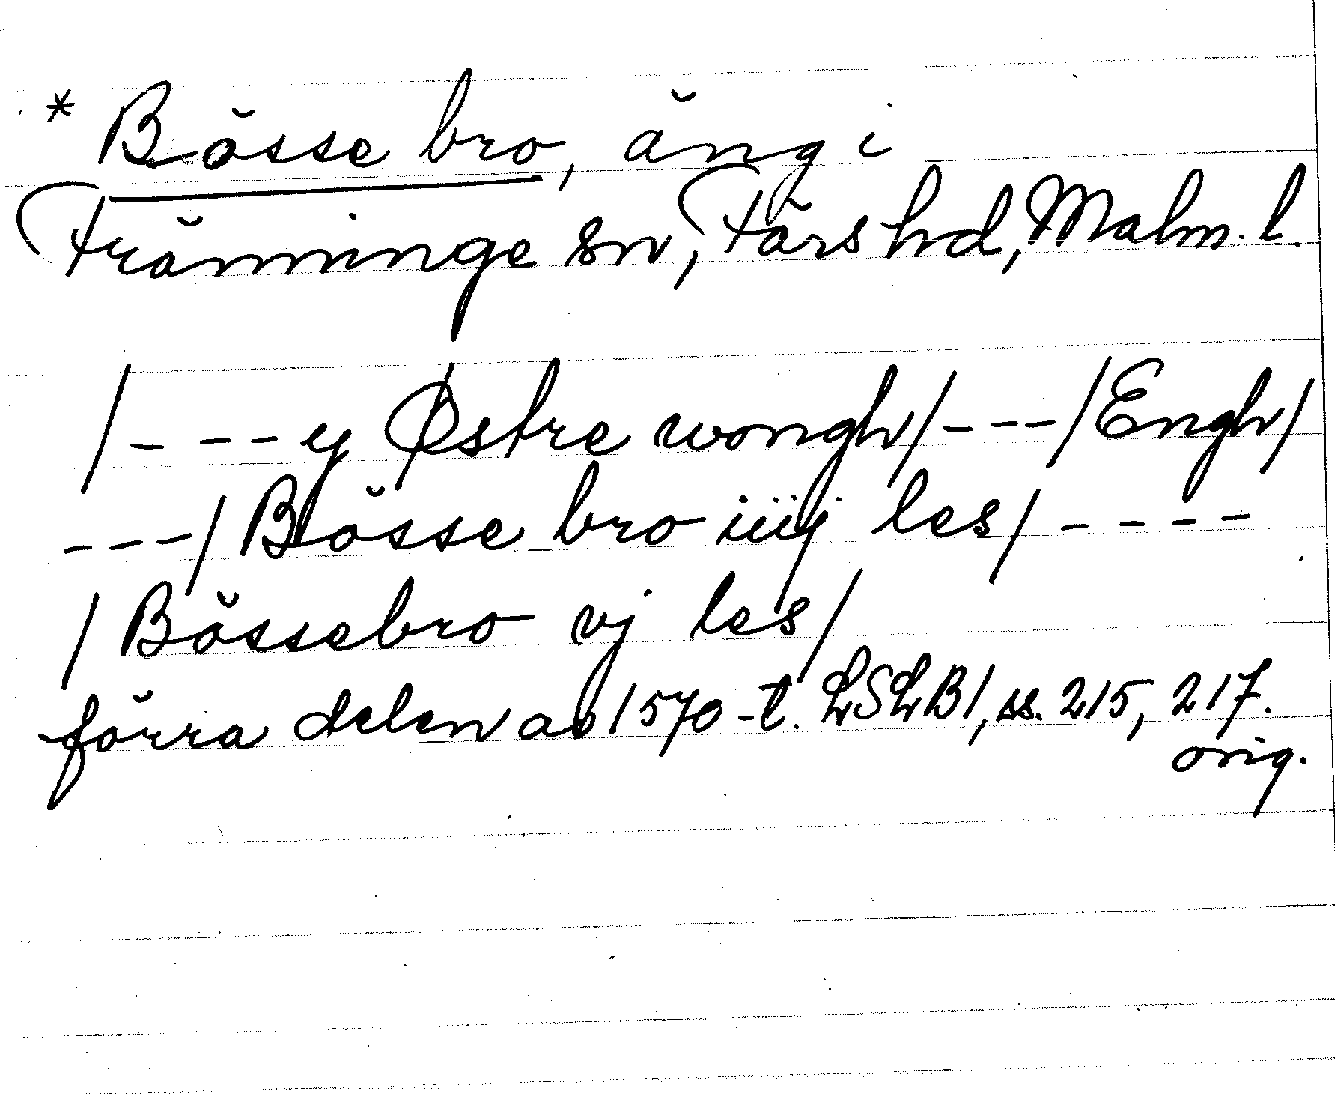 * Bösse bro, äng i
Tranninge sn, Färs hd, Malm. l.
/- - - - y Østre wongh/- - -/Engh/
- - -/Bösse bro iiij les/- - - -
/Bössebro vj les/
förra delen av 1570-t. LSLB1, ss. 215, 217.
orig.